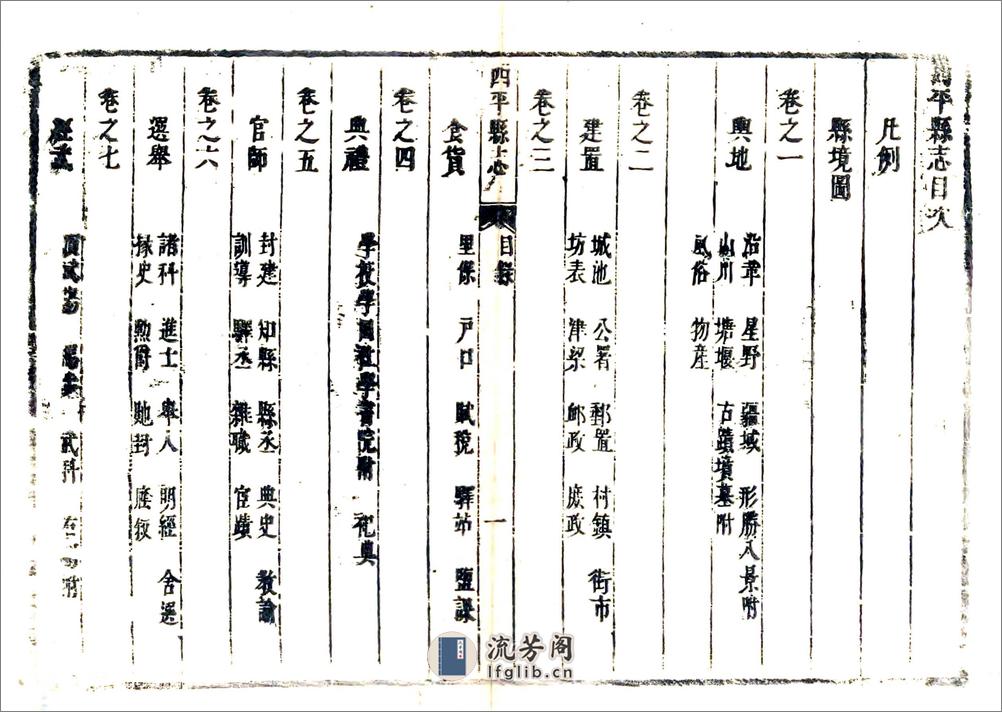 平縣志目次
凡例
縣境圖
卷之一
輿地
沿革 星野 疆域 形勝八景附
山川 塘堰 古蹟墳墓附
風俗 物産
卷之二
建置
城池 公署 郵置 村鎮 街市
坊表 津梁 邮政 庶政
卷之三
四平縣志 目録 一
食貨
里保 戸口 賦稅 驛站 鹽課
卷之四
典禮
學校學田社學書院附 祀典
卷之五
官師
封建 知縣 縣丞 典史 敎諭
訓導 驛丞 雜職 宦蹟
卷之六
選舉
諸科 進士 舉人 明經 舍選
掾史 勲爵 馳封 廕敘
卷之七
武科 附
流芳阁
lfglib.cn